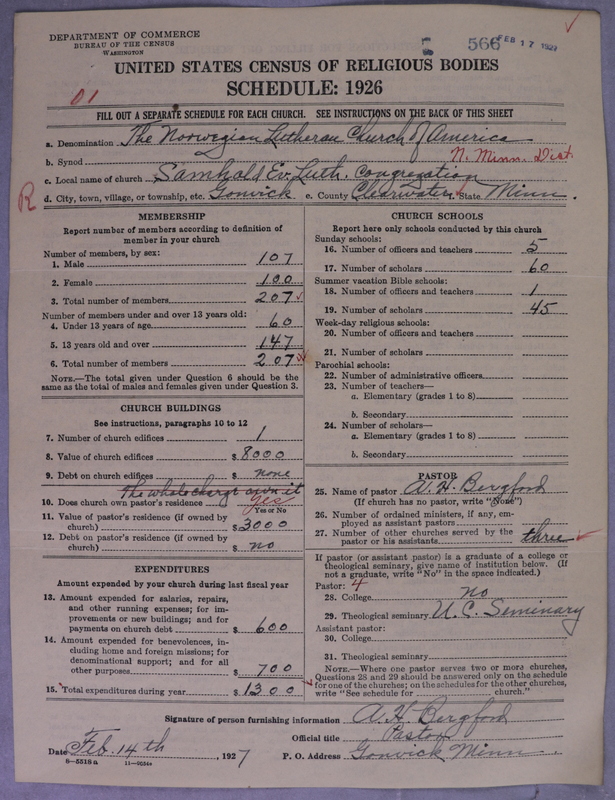 DEPARTMENT OF COMMERCE
BUREAU OF THE CENSUS
WASHINGTON
566 FEB 17 1927
UNITED STATES CENSUS OF RELIGIOUS BODIES
SCHEDULE: 1926
01
FILL OUT A SEPARATE SCHEDULE FOR EACH CHURCH. SEE INSTRUCTIONS ON THE BACK OF THIS SHEET
a. Denomination The Norwegian Lutheran Church of America
b. Synod N. Minn. Dist.
c. Local name of church Samhold Ev. Luth. Congregation
R
d. City, town, village, or township, etc. Gonvick e. County Clearwater State Minn.
MEMBERSHIP
Report number of members according to definition of
member in your church
Number of members, by sex:
1. Male 107
2. Female 100
3. Total number of members 207
Number of members under and over 13 years old:
4. Under 13 years of age 60
5. 13 years old and over 147
6. Total number of members 207
NOTE.—The total given under Question 6 should be the
same as the total of males and females given under Question 3.
CHURCH BUILDINGS
See instructions, paragraphs 10 to 12
7. Number of church edifices 1
8. Value of church edifices $ 8000
9. Debt on church edifices $ none
The whole charge own it
10. Does church own pastor's residence yes
Yes or No
11. Value of pastor's residence (if owned by
church) $ 3000
12. Debt on pastor's residence (if owned by
church) $ no
EXPENDITURES
Amount expended by your church during last fiscal year
13. Amount expended for salaries, repairs,
and other running expenses; for im-
provements or new buildings; and for
payments on church debt $ 600
14. Amount expended for benevolences, in-
cluding home and foreign missions; for
denominational support; and for all
other purposes $ 700
15. Total expenditures during year $ 1300
CHURCH SCHOOLS
Report here only schools conducted by this church
Sunday schools:
16. Number of officers and teachers 5
17. Number of scholars 60
Summer vacation Bible schools:
18. Number of officers and teachers 1
19. Number of scholars 45
Week-day religious schools:
20. Number of officers and teachers
21. Number of scholars
Parochial schools:
22. Number of administrative officers
23. Number of teachers—
a. Elementary (grades 1 to 8)
b. Secondary
24. Number of scholars—
a. Elementary (grades 1 to 8)
b. Secondary
PASTOR
25. Name of pastor A. H. Bergford
(If church has no pastor, write "None")
26. Number of ordained ministers, if any, em-
ployed as assistant pastors
27. Number of other churches served by the
pastor or his assistants three
If pastor (or assistant pastor) is a graduate of a college or
theological seminary, give name of institution below. (If
not a graduate, write "No" in the space indicated.)
Pastor: 4
28. College no
29. Theological seminary U. C. Seminary
Assistant pastor:
30. College
31. Theological seminary
NOTE.—Where one pastor serves two or more churches,
Questions 28 and 29 should be answered only on the schedule
for one of the churches; on the schedules for the other churches,
write "See schedule for church."
Signature of person furnishing information A. H. Bergford
Official title Pastor
Date Feb. 14th, 1927 P. O. Address Gonvick Minn.
8—5518a 11—9054